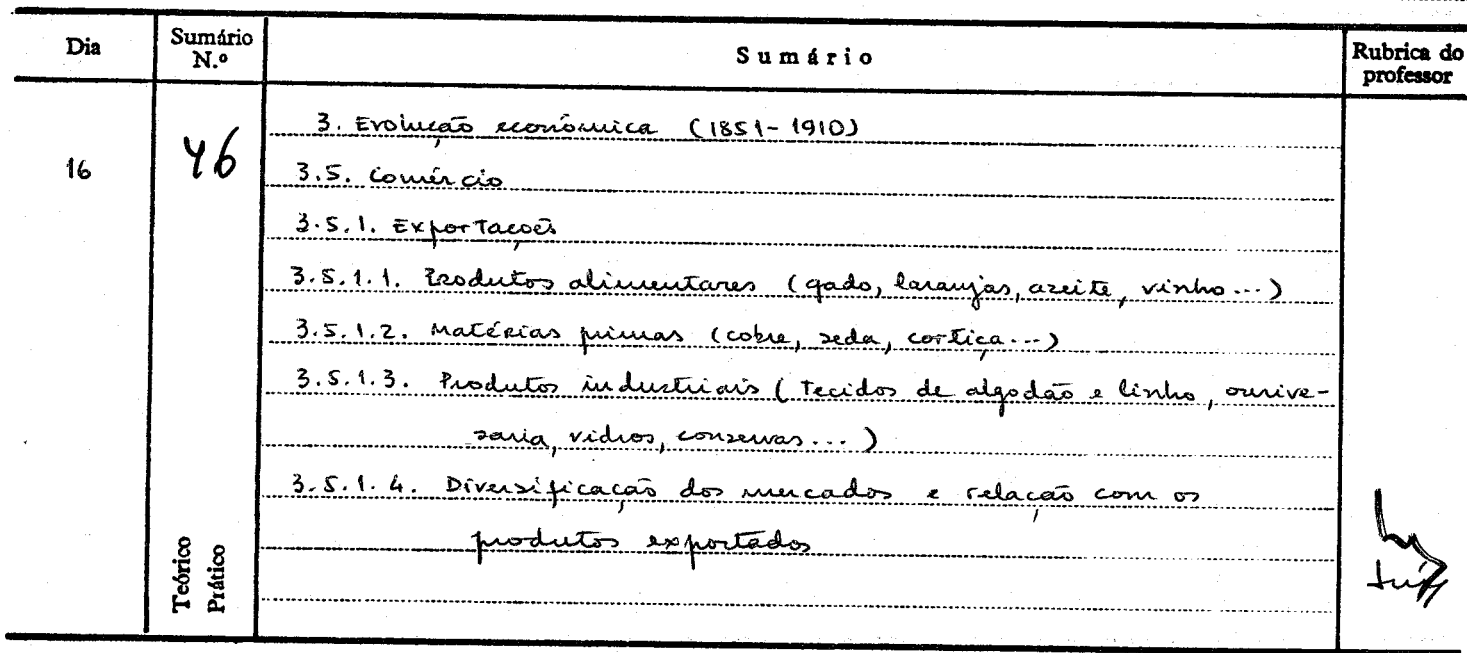 Dia
Sumário N.º
Sumário
Rubrica do professor
16
46
3. Evolução económica (1851-1910)
3.5. Comércio
3.5.1. Exportações
3.5.1.1. Produtos alimentares (gado, laranjas, azeite, vinho...)
3.5.1.2. Matérias primas (cobre, seda, cortiça...)
3.5.1.3. Produtos industriais (Tecidos de algodão e linho, ourive-
saria, vidros, conservas...)
3.5.1.4. Diversificação dos mercados e relação com os
produtos exportados
Teórico
Prático